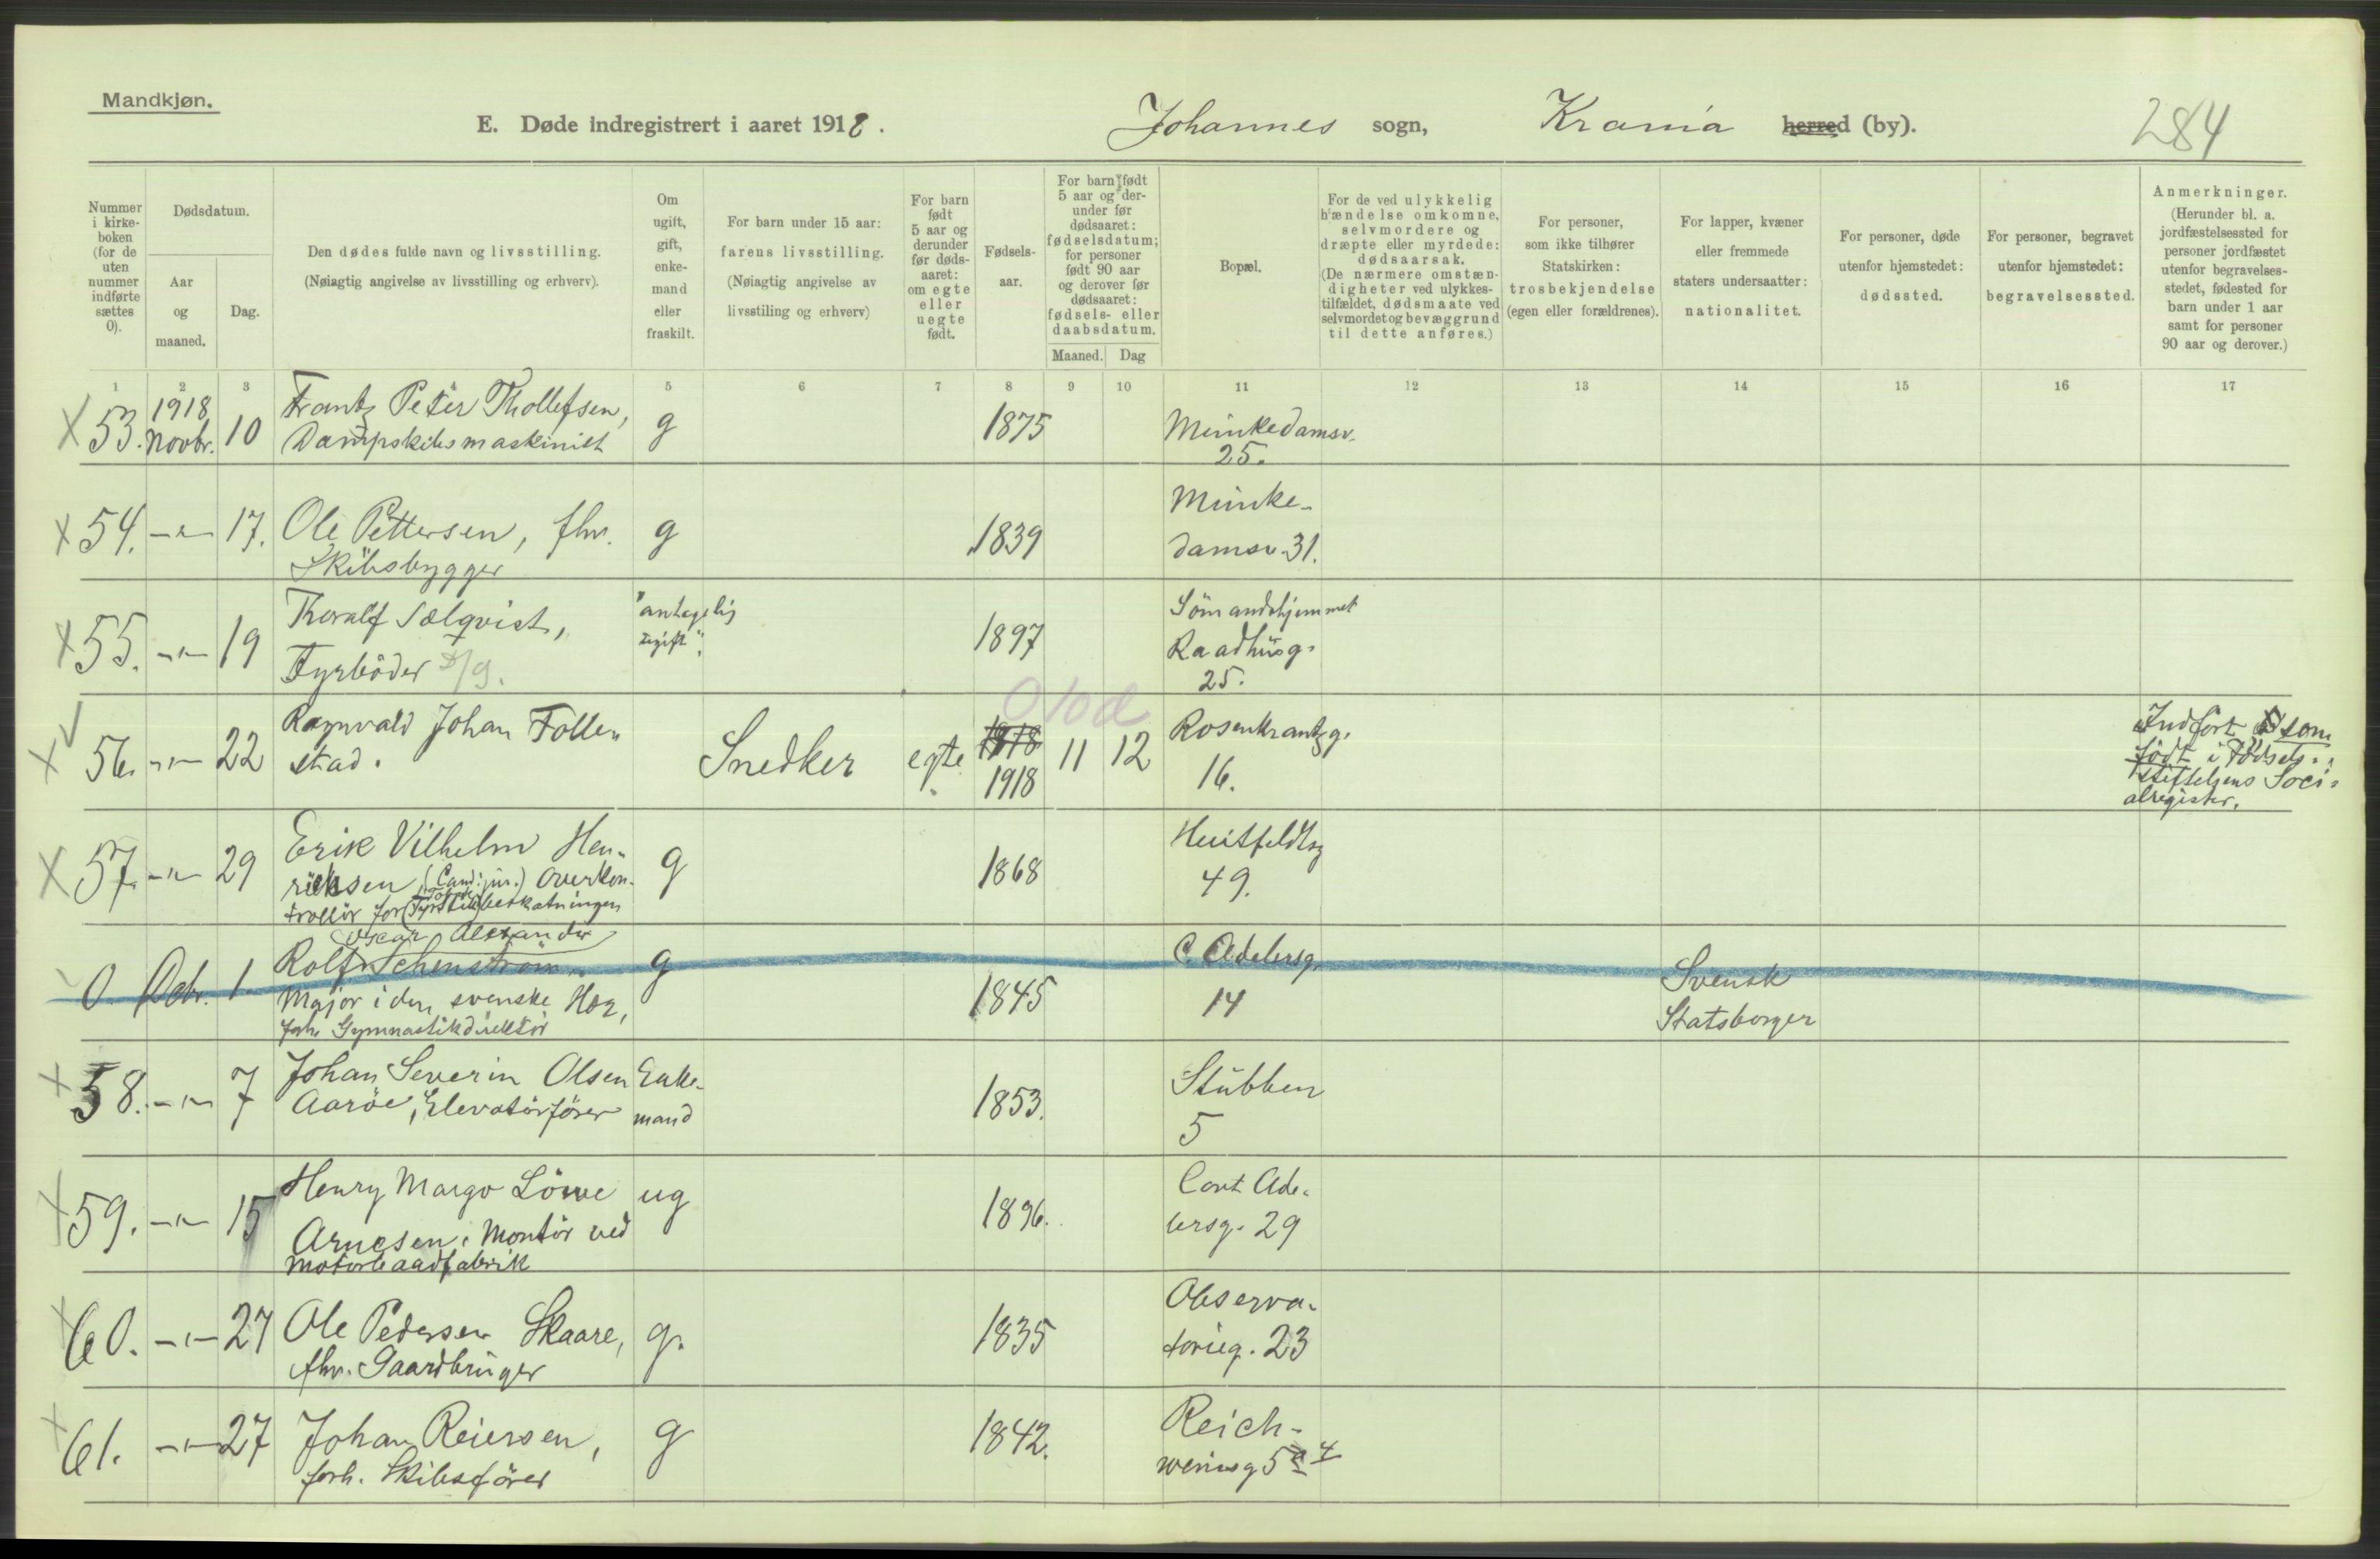 Mandkjøn.
E. Døde indregistrert i aaret 1918.
Johannes sogn, Krania herred (by).
284
Nummer i kirke-boken (for de uten nummer indførte sættes 0).
Dødsdatum.
Aar og maaned.
Dag.
Den dødes fulde navn og livsstilling.
(Nøiagtig angivelse av livsstilling og erhverv).
Om ugift, gift, enke-mand eller fraskilt.
For barn under 15 aar: farens livsstilling.
(Nøiagtig angivelse av livsstiling og erhverv)
For barn født 5 aar og derunder før døds-aaret: om egte eller uegte født.
Fødsels-aar.
For barn født 5 aar og der-under før dødsaaret: fødselsdatum; for personer født 90 aar og derover før dødsaaret: fødsels- eller daabsdatum.
Maaned. Dag
Bopæl.
For de ved ulykkelig hændelse omkomne, selvmordere og dræpte eller myrdede: dødsaarsak.
(De nærmere omstæn-digheter ved ulykkes-tilfældet, dødsmaate ved selvmordet og bevæggrund til dette anføres.)
For personer, som ikke tilhører Statskirken: trosbekjendelse (egen eller forældrenes).
For lapper, kvæner eller fremmede staters undersaatter: nationalitet.
For personer, døde utenfor hjemstedet: dødssted.
For personer, begravet utenfor hjemstedet: begravelsessted.
Anmerkninger.
(Herunder bl. a. jordfæstelsessted for personer jordfæstet utenfor begravelses-stedet, fødested for barn under 1 aar samt for personer 90 aar og derover.)
1 2 3 5 6 7 8 9 10 11 12 13 14 15 16 17
X 53. 1918 Novbr. 10 Frantz Peter Thollefsen, g 1875 Munkedamsv.
Dampskibsmaskinist 25.
X 54. -"- 17. Ole Pettersen, fhv. g 1839 Munke-
Skibsbygger damsv. 31.
X 55. -"- 19 Thoralf Sælqvist, "antagelig 1897 Sömandshjemmet
Fyrböder ugift". Raadhusg.
25.
X 56. -"- 22 Ragnvald Johan Follestad. Snedker egte 1918 11 12 Rosenkrantzg.
1918 16.
Indført som
født i Fødsels-
stiftelsens Soci-
alregister.
X 57. -"- 29 Erik Vilhelm Hen- g 1868 Huitfeldtsg
riksen (Cand. jur.) Overkon- 49.
trollör for beskatningen
Oscar Alexander
0 Dcbr. 1 Rolf Schenström g 1845 C. Adelersg. Svensk
Major i den svenske Hær, 14 Statsborger
forh. Gymnastikdirektör
X 58. -"- 7 Johan Severin Olsen Enke- 1853. Stubben
Aaröe, Elevatörförer mand 5
X 59. -"- 15 Henry Margo Löwe ug 1896. Cort Ade-
Arnesen, Montör ved lersg. 29
Motorbaadfabrik
X 60. -"- 27 Ole Pedersen Skaare, g. 1835 Observa-
fhv. Gaardbruger torieg. 23
X 61. -"- 27 Johan Reiersen, g 1842. Reich-
forh. Skibsförer weinsg 5